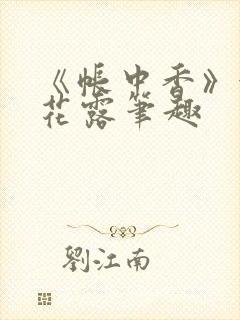 《帐中香》
花露笔趣
劉江南